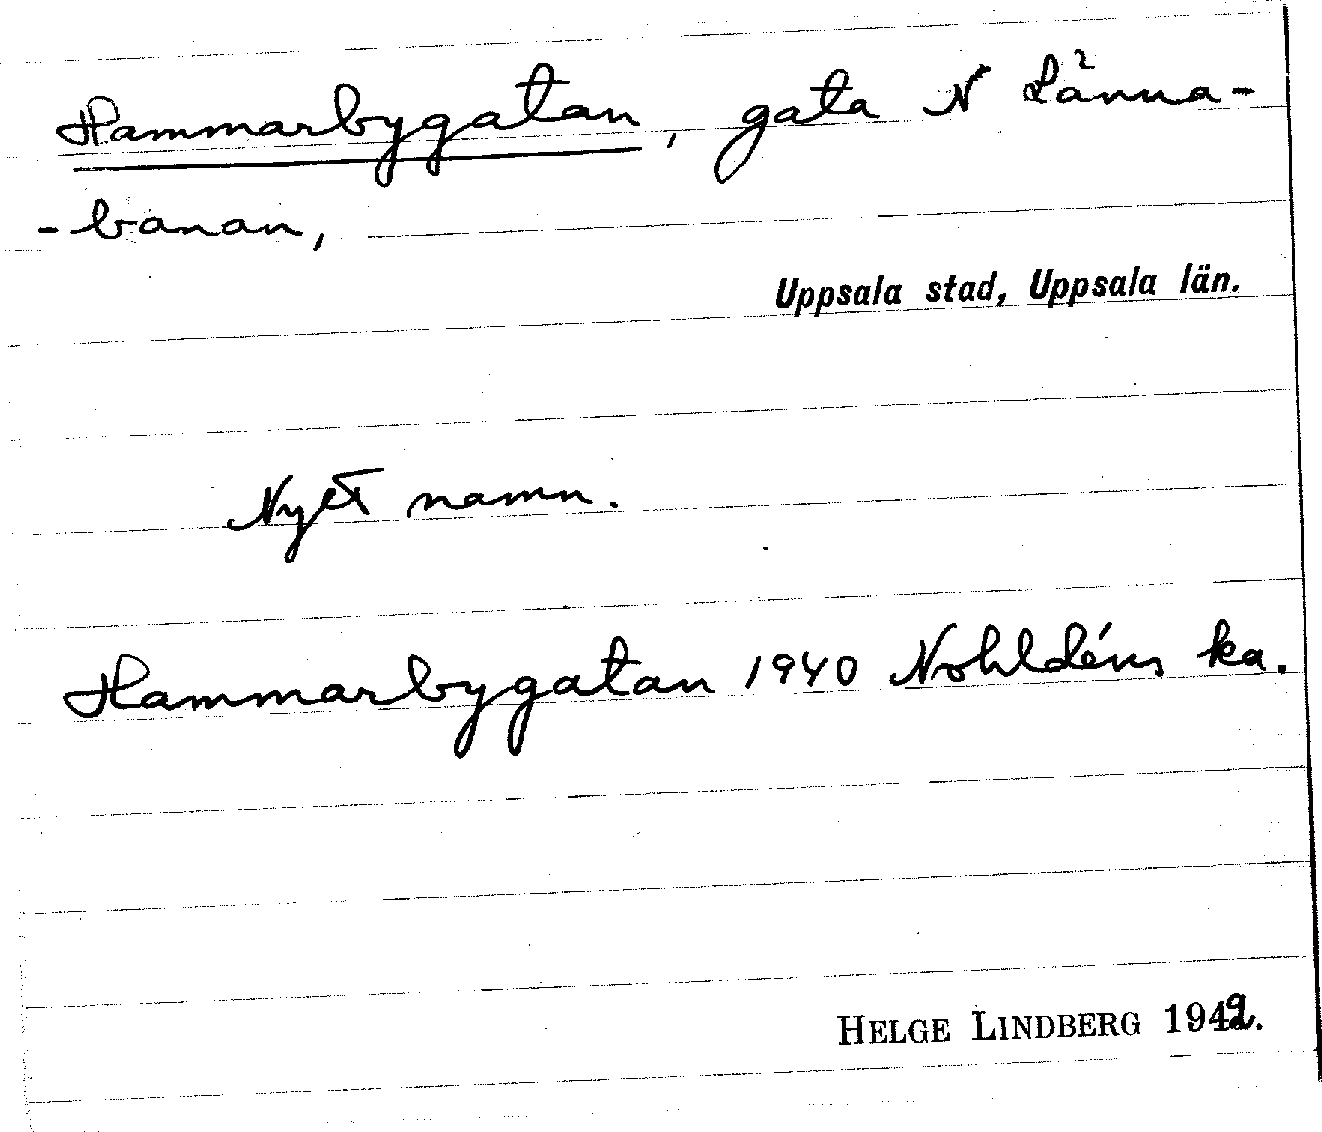 Hammarbygatan, gata N Länna-
-banan,
Uppsala stad, Uppsala län.
Nytt namn.
Hammarbygatan 1940 Nohldéns ka.
HELGE LINDBERG 1942.